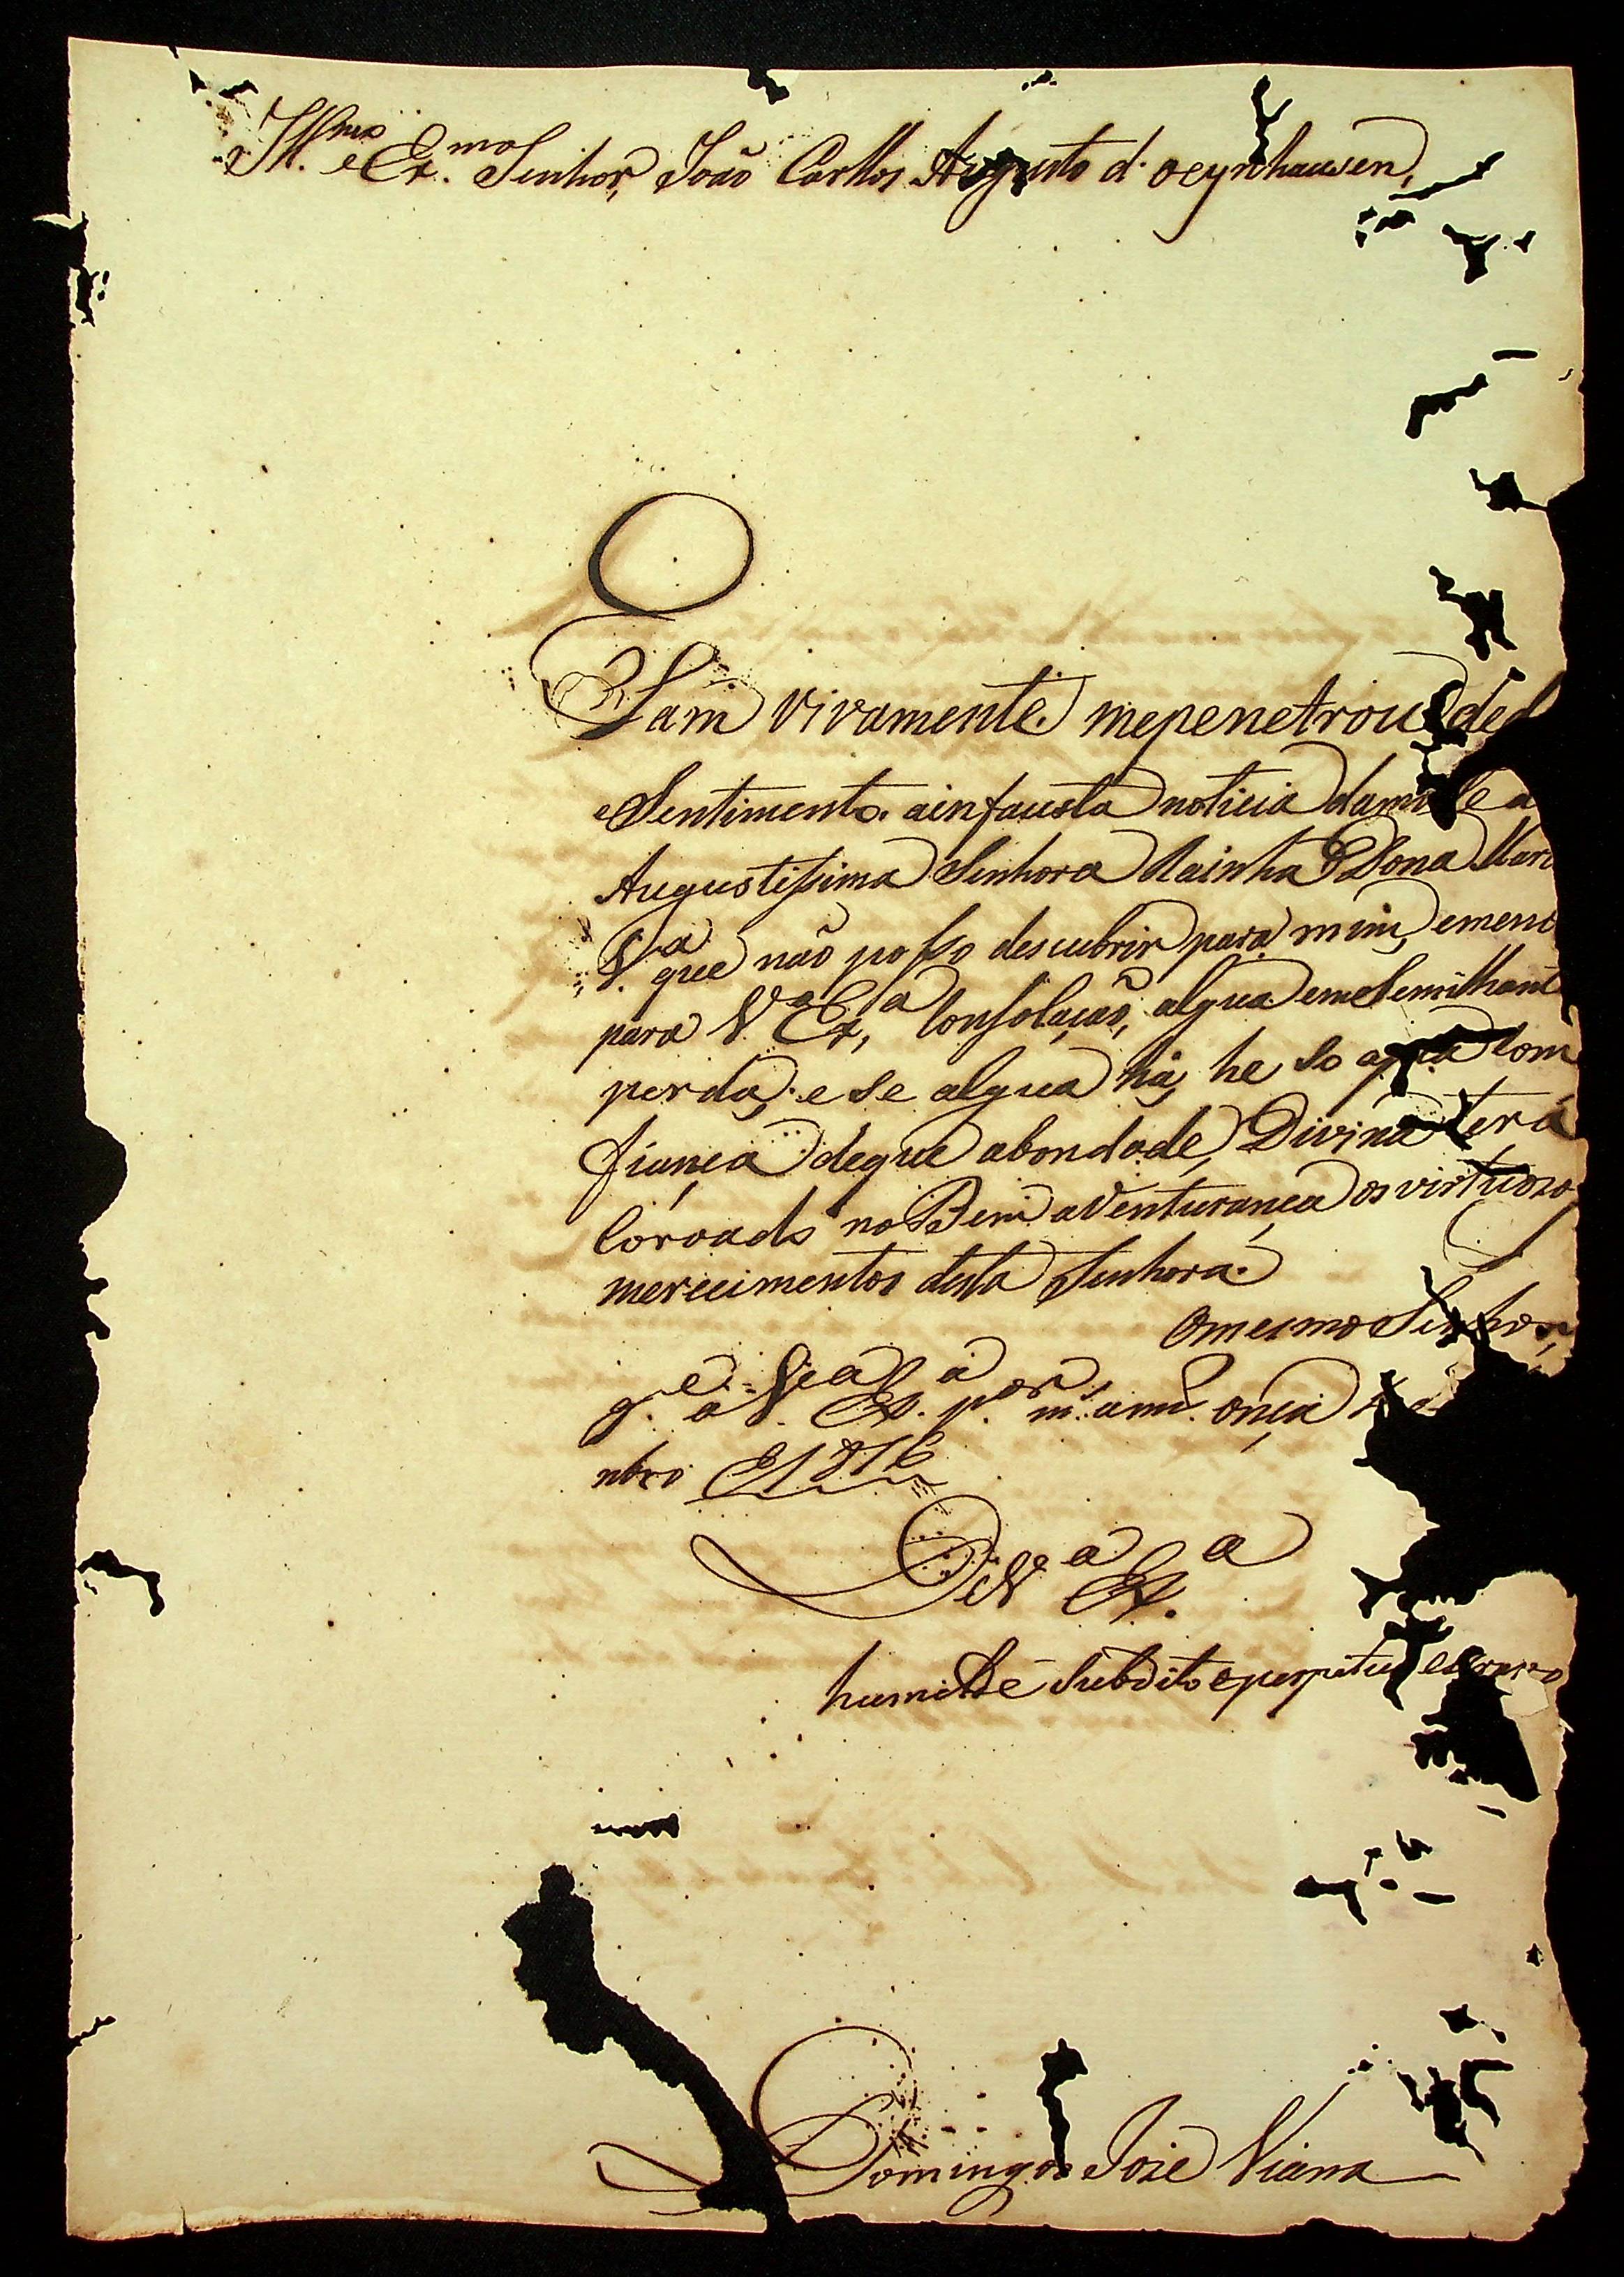 Ill.mo e Ex.mo Senhor, João Carllos Augusto d' Oeynhausen,
Tam vivamente mepenetrou ded
eSentimento. ainfausta noticia damorte a
Augustissima Senhora Rainha Dona Mari
1.a que não posso descubrir para mim, emeno
para V.a Ex,a Consolação, algua emeSemilhant
perda, e se algua há, he So aquella Com
fiança deque abondade, Divina terá
Coroado no Bem aVenturança os virtuozo
merecimentos desta Senhora.
Omesmo Senhor,
g.e a V.a Ex.a p.or m.s ann.s
nbro 1816
De V.a Ex.a
humilde Subdito eperpetuo escravo
Domingos Joze Viana